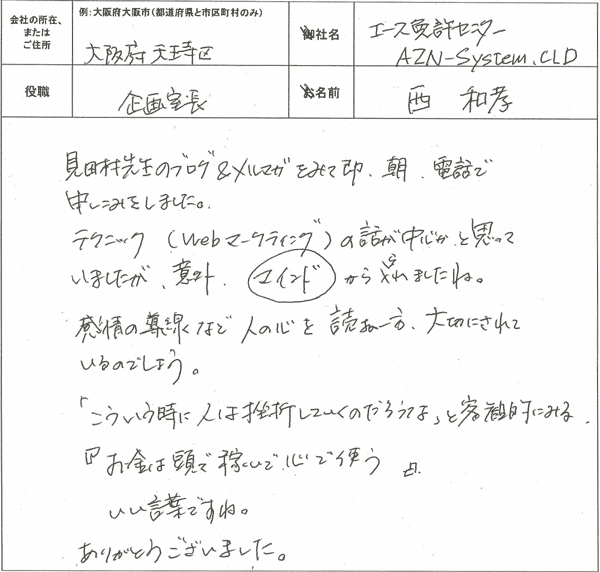 会社の所在、
または
ご住所
例：大阪府大阪市（都道府県と市区町村のみ）
大阪府 天王寺区
御社名
エース免許センター
AZN-System.CLD
役職
企画室長
お名前
西 和孝
見田村先生のブログ&メルマガをみて即、朝、電話で
申しこみをしました。
テクニック（Webマーケティング）の話が中心かと思って
いましたが、意外、マインドからでしたね。
感情の導線など人の心を読む一方、大切にされて
いるのでしょう。
「こういう時に人は挫折していくのだろうな」と客観的にみる。
『お金は頭で稼いで心で使う』
いい言葉ですね。
ありがとうございました。